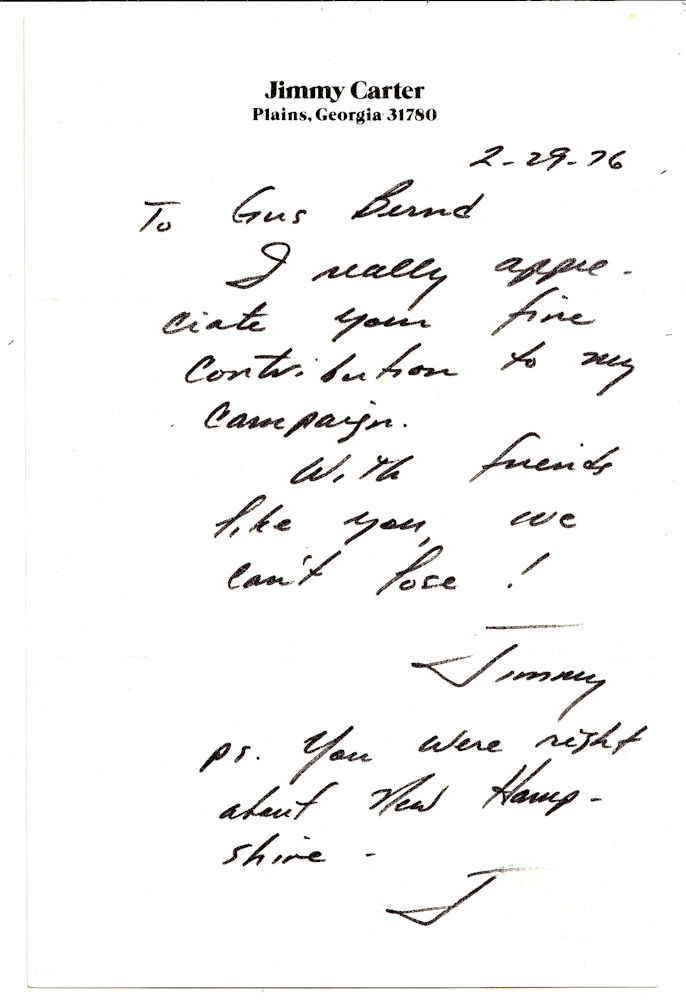 Jimmy Carter
Plains, Georgia 31780
2-29-76
To Gus Bernd
I really appre-
ciate your fine
contribution to my
campaign.
With friends
like you, we
can't lose!
Jimmy
ps. You were right
about New Hamp-
shire -
J